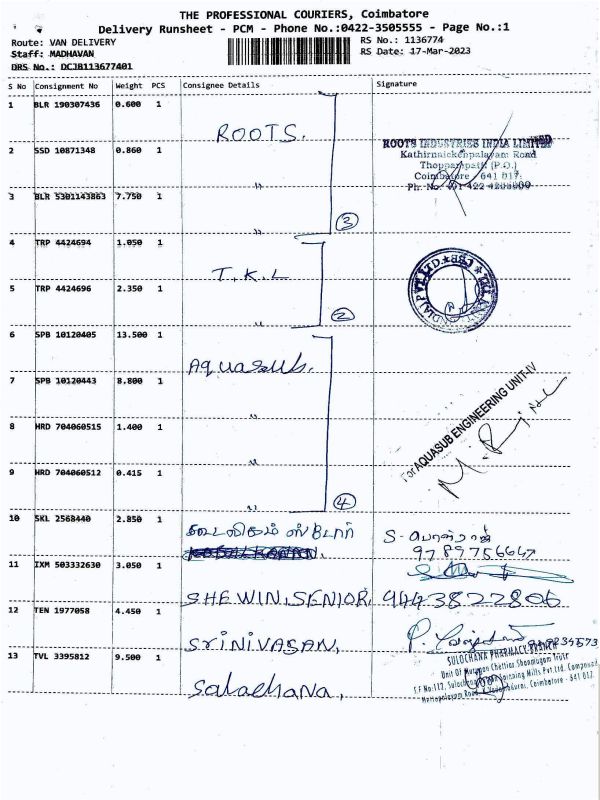 THE PROFESSIONAL COURIERS, Coimbatore
Delivery Runsheet - PCM - Phone No.:0422-3505555 - Page No.:1
Route: VAN DELIVERY
RS No.: 1136774
Staff: MADHAVAN
RS Date: 17-Mar-2023
DRS No.: DCJB113677401
S No Consignment No Weight PCS Consignee Details Signature
1 BLR 190307436 0.600 1 ROOTS.
2 SSD 10871348 0.860 1 〃
ROOTS INDUSTRIES INDIA LIMITED
Kathirnaickenpalayam Road
Thoppampatti (P.O.)
Coimbatore 641 017.
3 BLR 5301143863 7.750 1 〃
③
4 TRP 4424694 1.050 1 T.K.L
5 TRP 4424696 2.350 1 〃
②
6 SPB 10120405 13.500 1 Aquasub.
7 SPB 10120443 8.800 1 〃
For AQUASUB ENGINEERING UNIT-IV
8 HRD 704060515 1.400 1 〃
9 HRD 704060512 0.415 1 〃
④
10 SKL 2568440 2.850 1
9789756647
11 IXM 503332630 3.050 1 SHEWIN, SENIOR, 9443822806
12 TEN 1977058 4.450 1 SRINIVASAN,
13 TVL 3395812 9.500 1 Sulachana,
SULOCHANA PHARMACY BRANCH